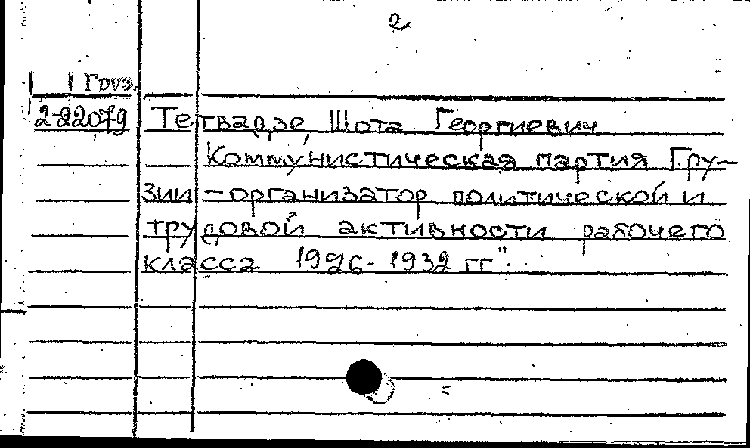 2
Груз.
2-22079 Тетвадзе, Шота Георгиевич
Коммунистическая партия Гру-
зии – организатор политической и
трудовой активности рабочего
класса 1926-1932 гг".